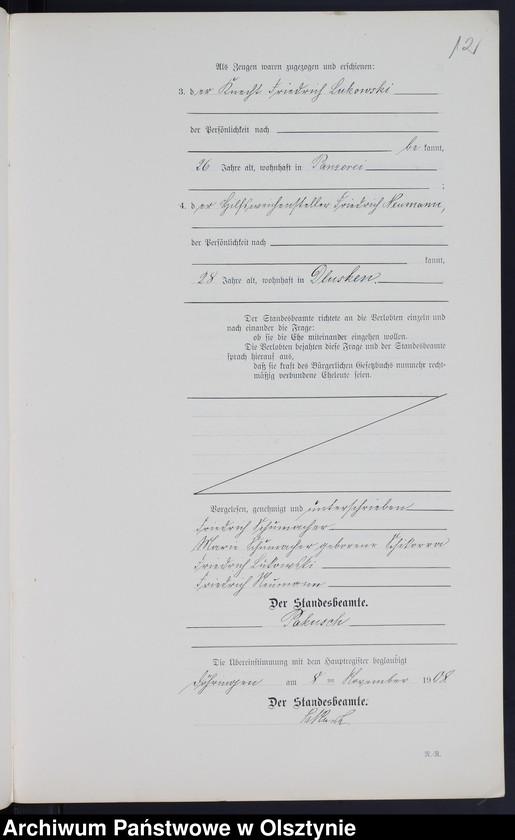 121
Als Zeugen waren zugezogen und erschienen:
3. der Knecht Friedrich Lukowski
der Persönlichkeit nach
bekannt,
26 Jahre alt, wohnhaft in Panzerei
;
4. der Hilfsweichensteller Friedrich Neumann,
der Persönlichkeit nach
kannt,
28 Jahre alt, wohnhaft in Dlusken.
Der Standesbeamte richtete an die Verlobten einzeln und
nach einander die Frage:
ob sie die Ehe miteinander eingehen wollen.
Die Verlobten bejahten diese Frage und der Standesbeamte
sprach hierauf aus,
daß sie kraft des Bürgerlichen Gesetzbuchs nunmehr recht-
mäßig verbundene Eheleute seien.
Vorgelesen, genehmigt und unterschrieben
Friedrich Schumacher
Marie Schumacher geborene Schikorra
Friedrich Lukowski
Friedrich Neumann
Der Standesbeamte.
Pakusch
Die Übereinstimmung mit dem Hauptregister beglaubigt
Döhringen am 8ten November 1908
Der Standesbeamte.
N.-R.
Archiwum Państwowe w Olsztynie